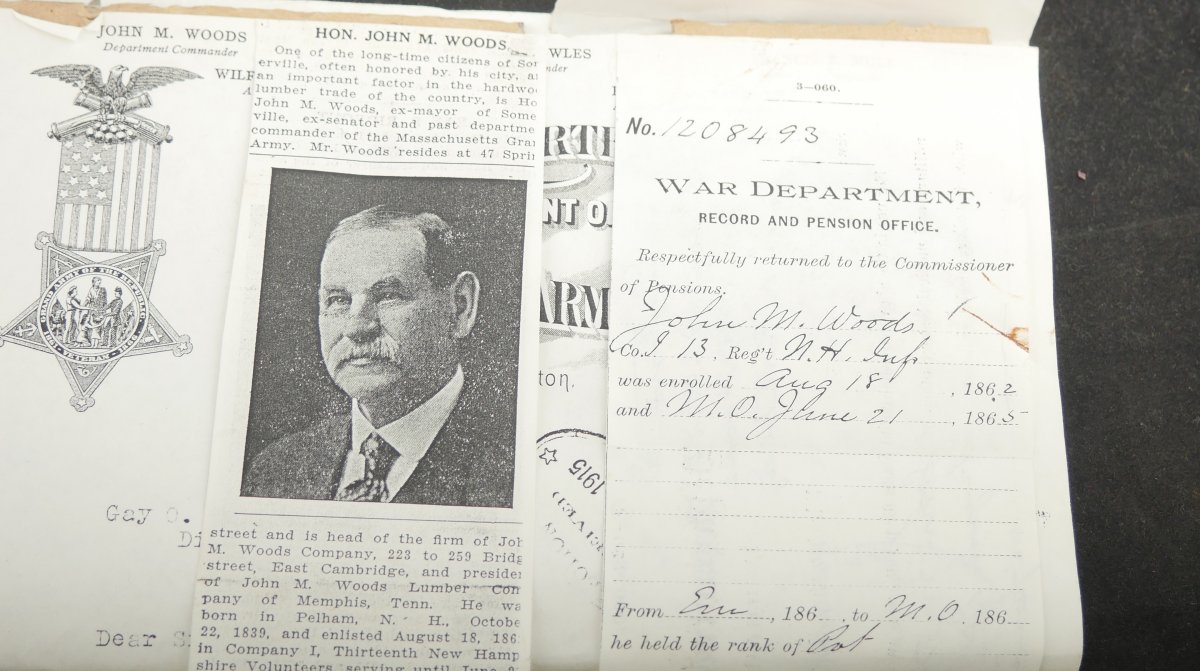 JOHN M. WOODS
Department Commander
WILF
GRAND ARMY OF THE REPUBLIC
1861 - VETERAN - 1866
Gay O.
Di
Dear S
HON. JOHN M. WOODS.
One of the long-time citizens of Som
erville, often honored by his city, a
an important factor in the hardwo
lumber trade of the country, is Ho
John M. Woods, ex-mayor of Some
ville, ex-senator and past departme
commander of the Massachusetts Gran
Army. Mr. Woods resides at 47 Sprin
street and is head of the firm of Joh
M. Woods Company, 223 to 259 Bridg
street, East Cambridge, and presiden
of John M. Woods Lumber Com
pany of Memphis, Tenn. He wa
born in Pelham, N. H., Octobe
22, 1839, and enlisted August 18, 186
in Company I, Thirteenth New Hamp
shire Volunteers, serving until June 2
WLES
nder
RTE
NT O
ARM
ton,
1915
3—060.
No. 1208493
WAR DEPARTMENT,
RECORD AND PENSION OFFICE.
Respectfully returned to the Commissioner
of Pensions.
John M. Woods
Co. I. 13, Reg't N.H. Inf
was enrolled Aug 18, 1862
and M.O. June 21, 1865
From Em, 186 to M.O. 186
he held the rank of Pvt